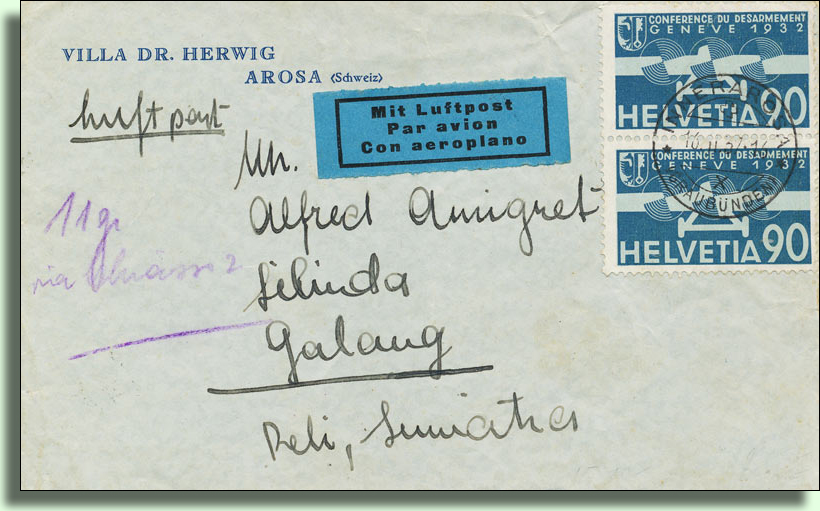 VILLA DR. HERWIG
AROSA (Schweiz)
Luftpost
Mit Luftpost
Par avion
Con aeroplano
CONFERENCE DU DESARMEMENT
GENEVE 1932
HELVETIA 90
CONFERENCE DU DESARMEMENT
GENEVE 1932
HELVETIA 90
INNERAROSA
(GRAUBÜNDEN)
Mr.
Alfred Amigret
Silinda
Galang
Deli, Sumatra
11 gr
via